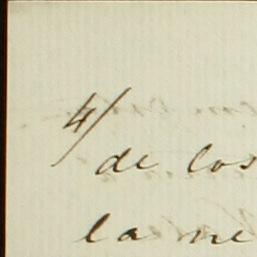 4/
de los
la ne